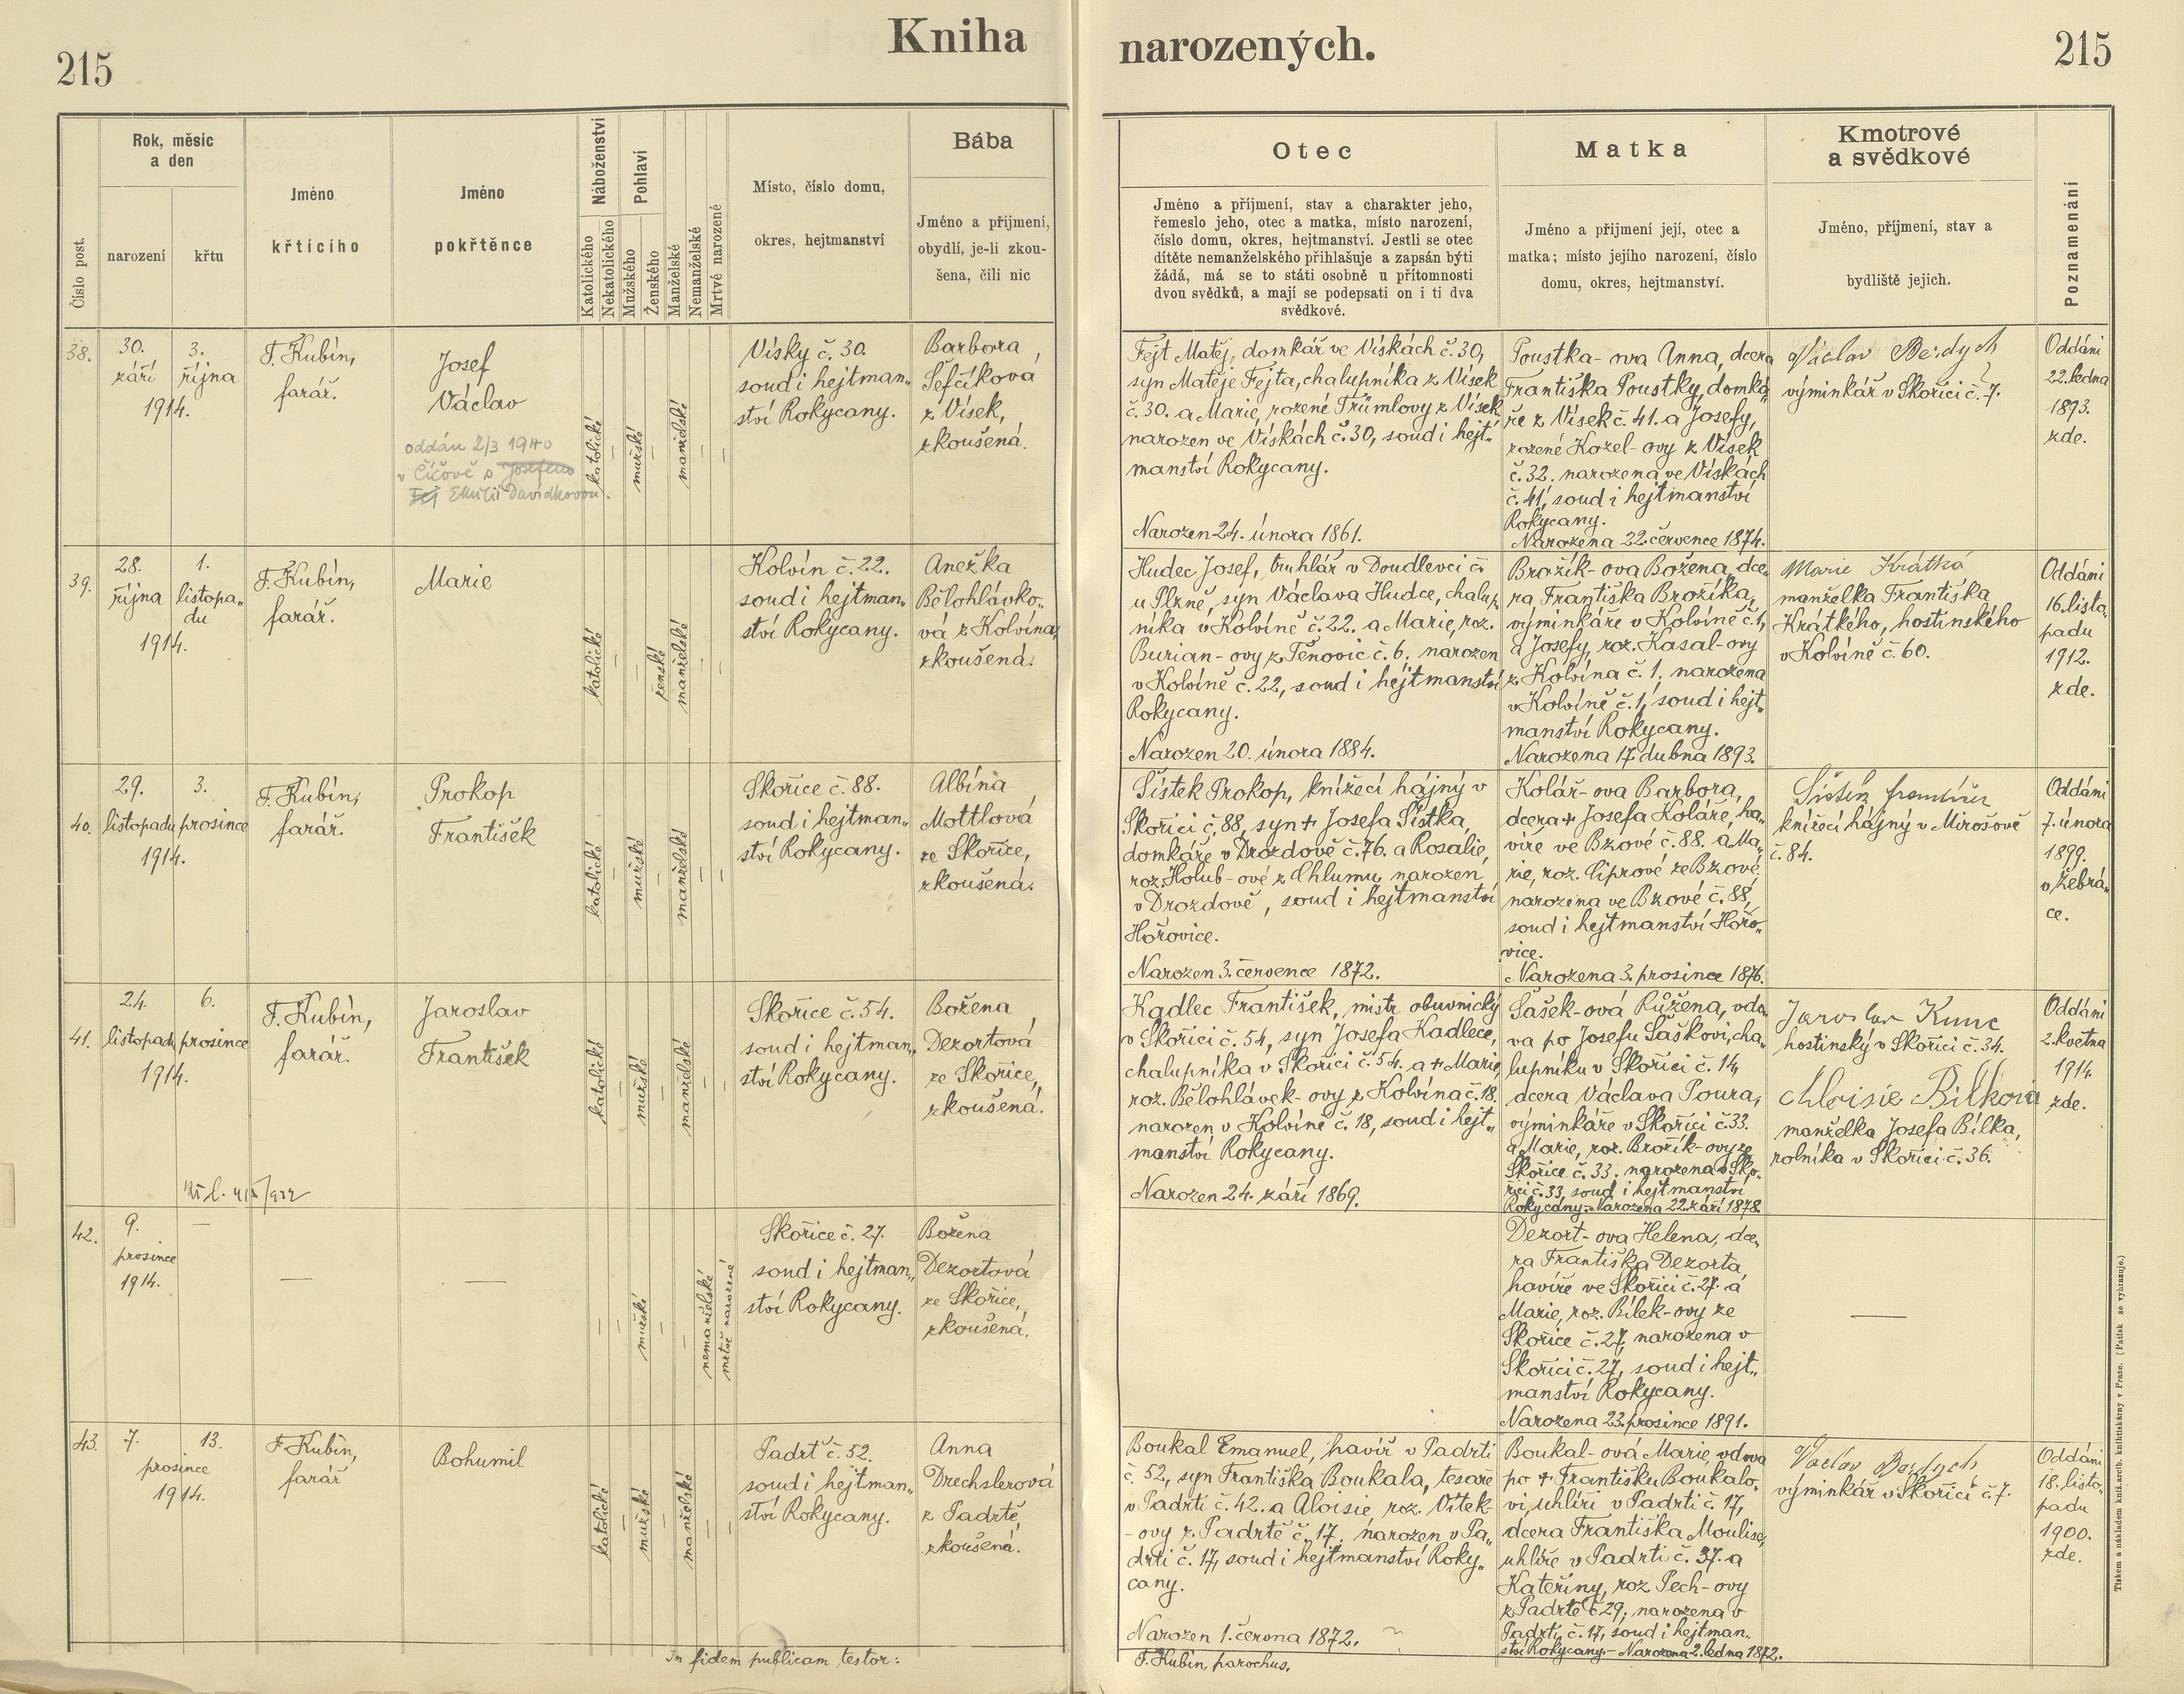 215
Kniha
narozených.
215
Číslo post.
Rok, měsíc
a den
narození
křtu
Jméno
křtícího
Jméno
pokřtěnce
Náboženství
Katolického
Nekatolického
Pohlaví
Mužského
Ženského
Manželské
Nemanželské
Mrtvě narozené
Místo, číslo domu,
okres, hejtmanství
Bába
Jméno a přijmení,
obydlí, je-li zkou-
šena, čili nic
Otec
Jméno a příjmení, stav a charakter jeho,
řemeslo jeho, otec a matka, místo narození,
číslo domu, okres, hejtmanství. Jestli se otec
dítěte nemanželského přihlašuje a zapsán býti
žádá, má se to státi osobně u přítomnosti
dvou svědků, a mají se podepsati on i ti dva
svědkové.
Matka
Jméno a přijmení její, otec a
matka; místo jejího narození, číslo
domu, okres, hejtmanství.
Kmotrové
a svědkové
Jméno, příjmení, stav a
bydliště jejich.
Poznamenání
38.
30.
září
3.
října
1914.
F. Kubín,
farář.
Josef
Václav
oddán 2/3 1940
v Číčově s Josefem
Fej Emilií Davídkovou.
katolické
—
mužské
—
manželské
—
—
Vísky č. 30.
soud i hejtman„
ství Rokycany.
Barbora
Šefčíková
z Vísek,
zkoušená.
Fejt Matěj, domkář ve Vískách č. 30,
syn Matěje Fejta, chalupníka z Vísek
č. 30. a Marie, rozené Trümlovy z Vísek
narozen ve Vískách č. 30, soud i hejt„
manství Rokycany.
Narozen 24. února 1861.
Poustka-ova Anna, dcera
Františka Poustky, domká
ře z Vísek č. 41. a Josefy,
rozené Kozel-ovy z Vísek
č. 32. narozena ve Vískách
č. 41, soud i hejtmanství
Rokycany.
Narozena 22. července 1874.
Václav Berdych
výminkář v Skořici č. 7.
Oddáni
22. ledna
1893.
zde.
39.
28.
října
1.
listopa„
du
1914.
F. Kubín,
farář.
Marie
katolické
—
—
ženské
manželské
—
—
Kolvín č. 22.
soud i hejtman„
ství Rokycany.
Anežka
Bělohlávko„
vá z Kolvína,
zkoušená.
Hudec Josef, truhlář v Doudlevci č.
u Plzně, syn Václava Hudce, chalup
níka v Kolvíně č. 22. a Marie, roz.
Burian-ovy z Těnovic č. 6. narozen
v Kolvíně č. 22, soud i hejtmanství
Rokycany.
Narozen 20. února 1884.
Brožík-ova Božena, dce„
ra Františka Brožíka,
výminkáře v Kolvíně č. 1,
a Josefy, roz. Kasal-ovy
z Kolvína č. 1, narozena
v Kolvíně č. 1, soud i hejt„
manství Rokycany.
Narozena 17. dubna 1893.
Marie Krátká
manželka Františka
Krátkého, hostinského
v Kolvíně č. 60.
Oddáni
16. listo„
padu
1912.
zde.
40.
29.
listopadu
3.
prosince
1914.
F. Kubín,
farář.
Prokop
František
katolické
—
mužské
—
manželské
—
—
Skořice č. 88.
soud i hejtman„
ství Rokycany.
Albína
Mottlová
ze Skořice,
zkoušená.
Šístek Prokop, knížecí hajný v
Skořici č. 88, syn + Josefa Šístka,
domkáře v Drozdově č. 76. a Rosalie,
roz. Holub-ové z Chlumu, narozen
v Drozdově, soud i hejtmanství
Hořovice.
Narozen 3. července 1872.
Kolář-ova Barbora,
dcera + Josefa Koláře, ha„
víře ve Bzové č. 88. a Ma„
rie, roz. Ciprové ze Bzové,
narozena ve Bzové č. 88,
soud i hejtmanství Hořo„
vice.
Narozena 3. prosince 1876.
knížecí hájný v Mirošově
č. 84.
Oddáni
7. února
1899.
v Žebrá„
ce.
41.
24.
listopadu
6.
prosince
1914.
F. Kubín,
farář.
Jaroslav
František
katolické
—
mužské
—
manželské
—
—
Skořice č. 54.
soud i hejtman„
ství Rokycany.
Božena
Dezortová
ze Skořice,
zkoušená.
Kadlec František, mistr obuvnický
v Skořici č. 54, syn Josefa Kadlece,
chalupníka v Skořici č. 54. a + Marie
roz. Bělohlávek-ovy z Kolvína č. 18.
narozen v Kolvíně č. 18, soud i hejt„
manství Rokycany.
Narozen 24. září 1869.
Šašek-ová Růžena, vdo„
va po Josefu Šaškovi, cha„
lupníku v Skořici č. 14,
dcera Václava Poura,
výminkáře v Skořici č. 33.
a Marie, roz. Brožík-ovy ze
Skořice č. 33. narozena v Sko„
řici č. 33, soud i hejtmanství
Rokycany. Narozena 22. září 1878.
Jaroslav Kunc
hostinský v Skořici č. 34.
Aloisie Bílková
manželka Josefa Bílka,
rolníka v Skořici č. 36.
Oddáni
2. května
1914
zde.
42.
9.
prosince
1914.
—
—
—
—
—
mužské
—
—
nemanželské
mrtvě narozené
Skořice č. 27.
soud i hejtman„
ství Rokycany.
Božena
Dezortová
ze Skořice,
zkoušená.
Dezort-ova Helena, dce„
ra Františka Dezorta,
havíře ve Skořici č. 27. a
Marie, roz. Bílek-ovy ze
Skořice č. 27, narozena v
Skořici č. 27, soud i hejt„
manství Rokycany.
Narozena 23. prosince 1891.
—
43.
7.
13.
prosince
1914.
F. Kubín,
farář
Bohumil
katolické
—
mužské
—
manželské
—
—
Padrť č. 52.
soud i hejtman„
ství Rokycany.
Anna
Drechslerová
z Padrtě,
zkoušená.
Boukal Emanuel, havíř v Padrti
č. 52, syn Františka Boukala, tesaře
v Padrti č. 42. a Aloisie, roz. Vítek-
-ovy z Padrtě č. 17, narozen v Pa„
drti č. 17, soud i hejtmanství Roky„
cany.
Narozen 1. června 1872.
Boukal-ová Marie, vdova
po + Františku Boukalo„
vi, uhlíři v Padrti č. 17,
dcera Františka Moulise,
uhlíře v Padrti č. 37. a
Kateřiny, roz. Pech-ovy
z Padrtě č 29, narozena v
Padrti č. 17, soud i hejtman„
ství Rokycany. – Narozena 2. ledna 1872.
Václav Berdych
výminkář v Skořici č. 7.
Oddáni
18. listo„
padu
1900.
zde.
In fidem publicam testor:
F. Kubín, parochus.
Tiskem a nákladem kníž. arcib. knihtiskárny v Praze. (Patisk se vyhrazuje.)